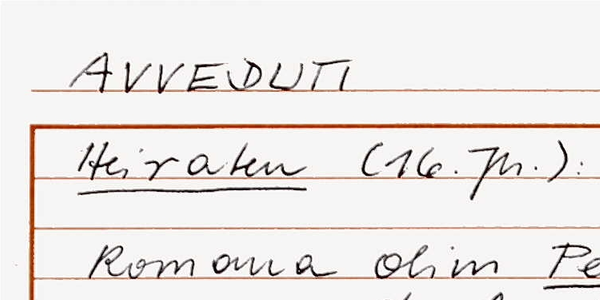 AVVEDUTI
Heiraten (16. Jh.):
Romana olim Pe